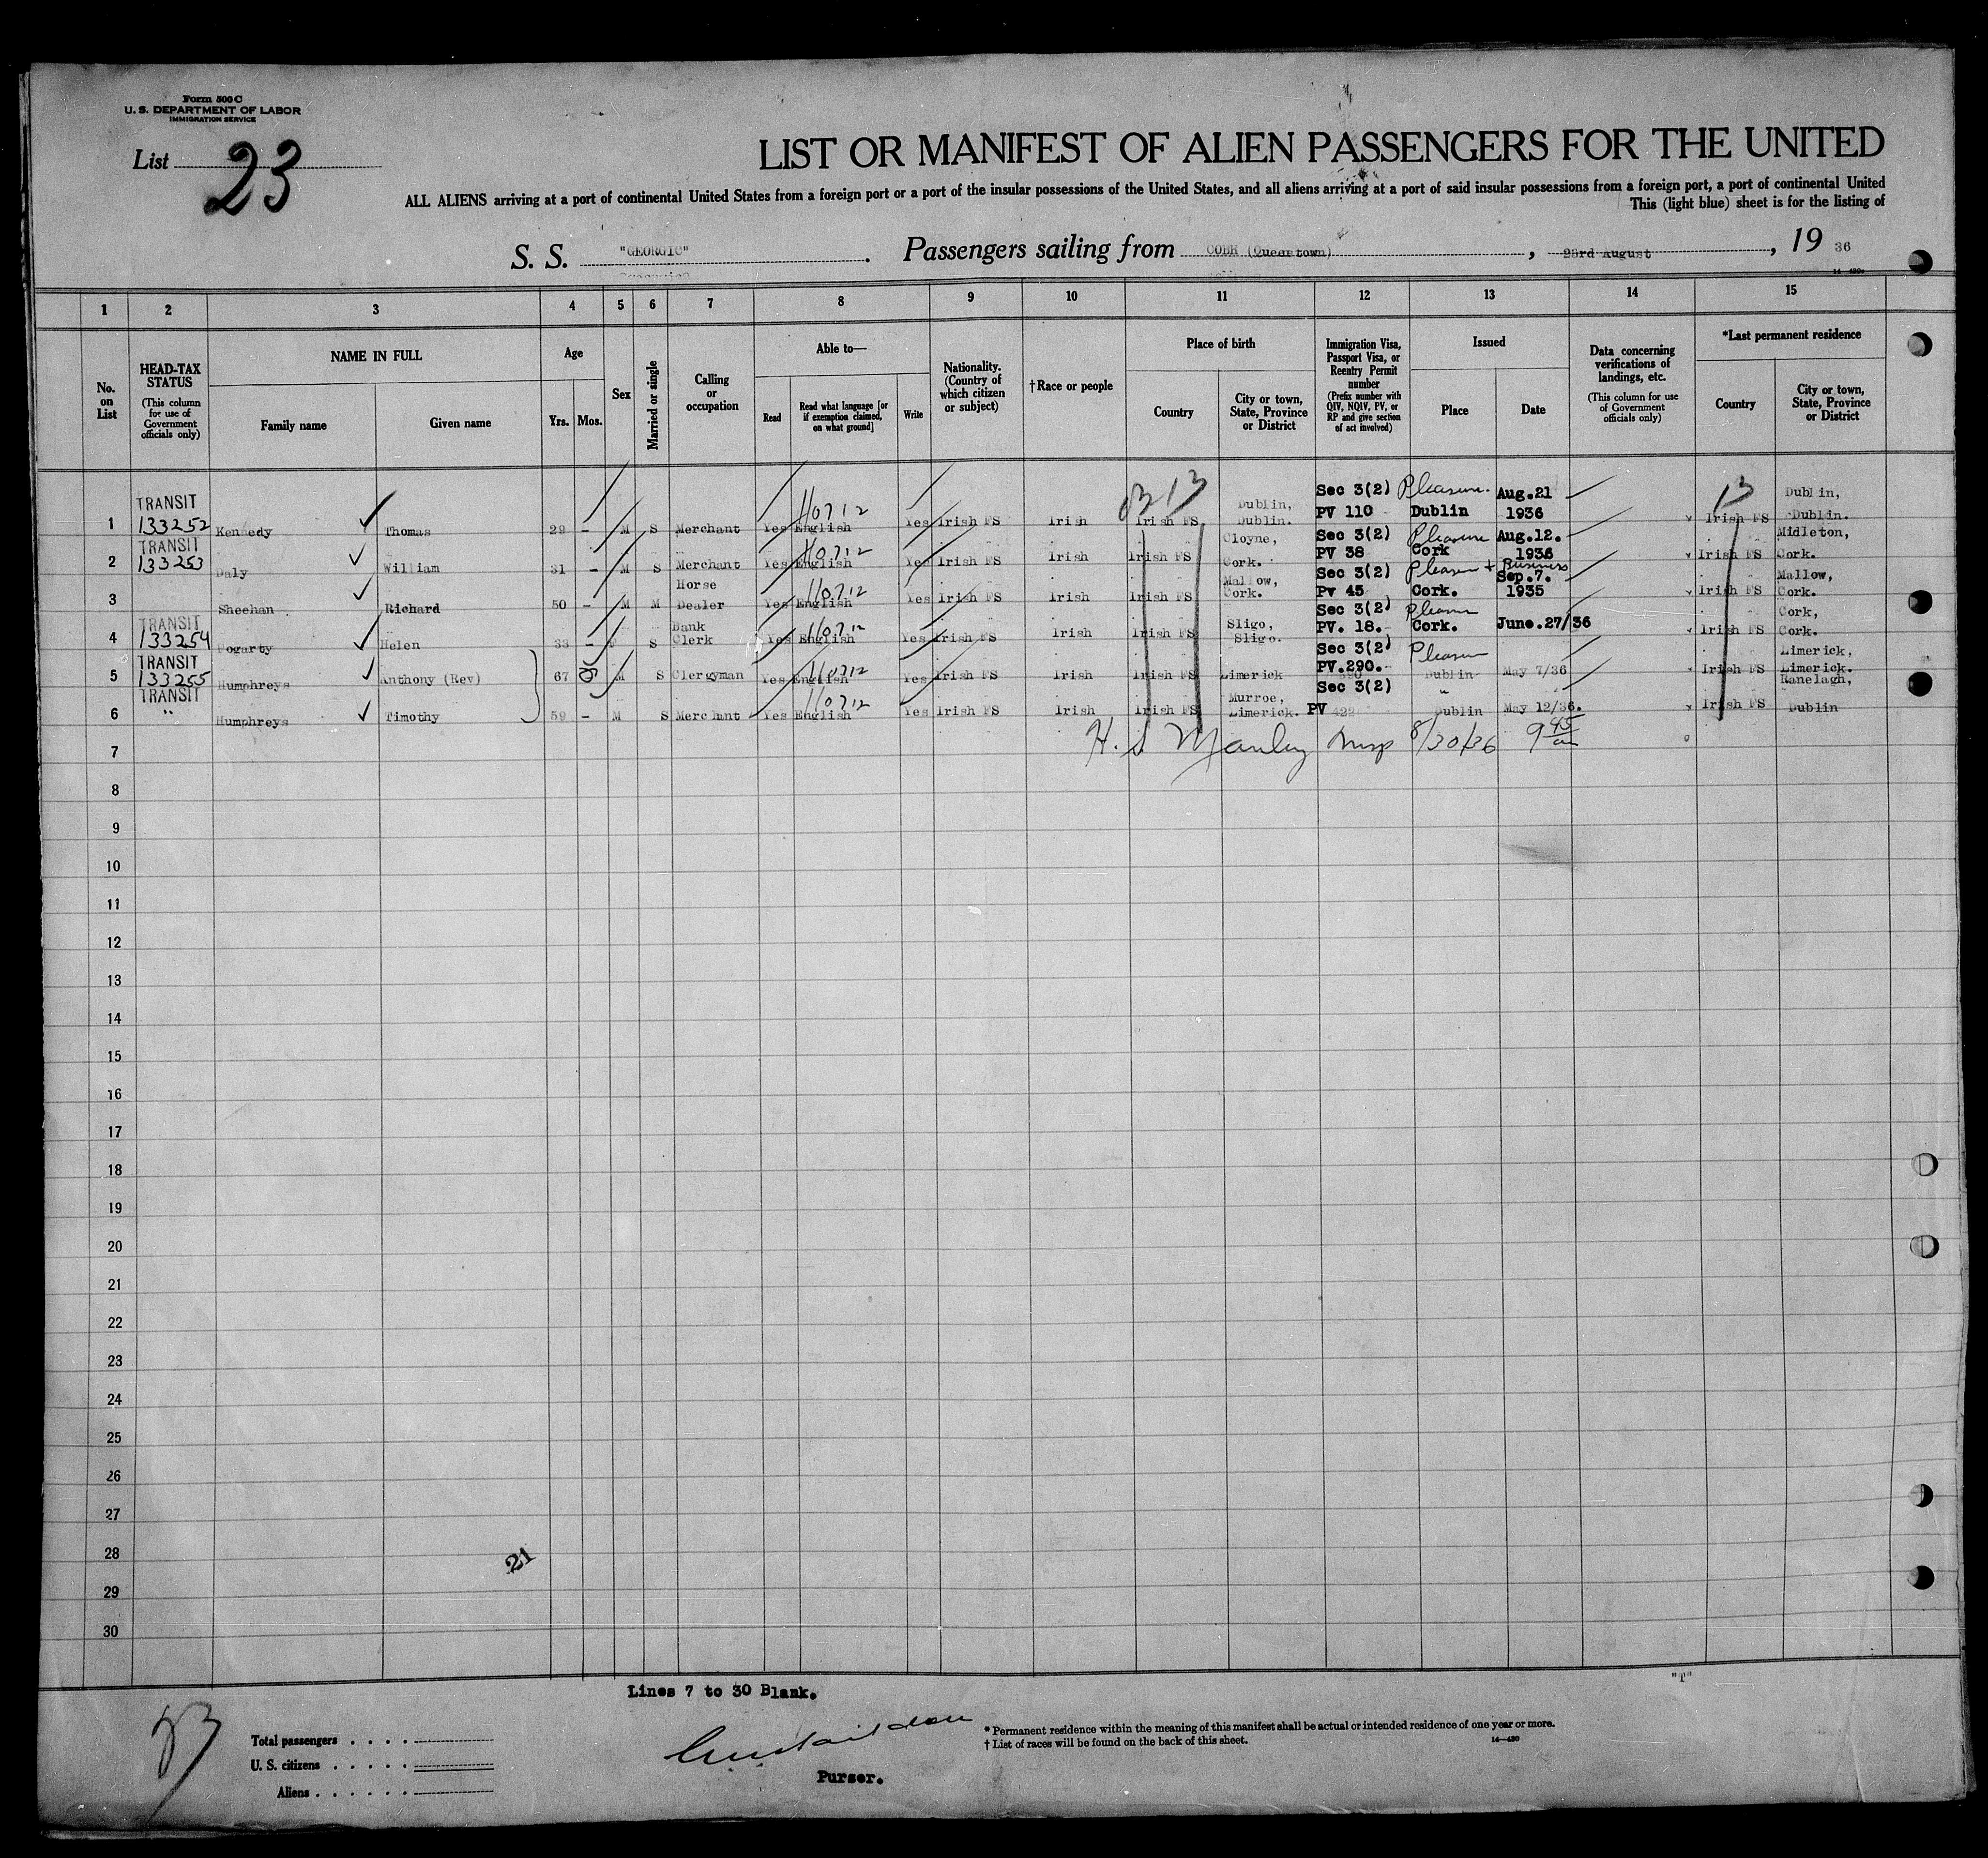 Form 500 C
U. S. DEPARTMENT OF LABOR
IMMIGRATION SERVICE
List 23
LIST OR MANIFEST OF ALIEN PASSENGERS FOR THE UNITED
ALL ALIENS arriving at a port of continental United States from a foreign port or a port of the insular possessions of the United States, and all aliens arriving at a port of said insular possessions from a foreign port, a port of continental United
This (light blue) sheet is for the listing of
S. S. "GEORGIC". Passengers sailing from COBH (Queenstown), 23rd August, 19 36
1 2 3 4 5 6 7 8 9 10 11 12 13 14 15
No. on List
HEAD-TAX STATUS
(This column for use of Government officials only)
NAME IN FULL
Family name
Given name
Age
Yrs.
Mos.
Sex
Married or single
Calling or occupation
Able to—
Read
Read what language [or if exemption claimed, on what ground]
Write
Nationality. (Country of which citizen or subject)
† Race or people
Place of birth
Country
City or town, State, Province or District
Immigration Visa, Passport Visa, or Reentry Permit number
(Prefix number with QIV, NQIV, PV, or RP and give section of act involved)
Issued
Place
Date
Data concerning verifications of landings, etc.
(This column for use of Government officials only)
*Last permanent residence
Country
City or town, State, Province or District
13 13
TRANSIT 110712 Dublin, Sec 3(2) Pleasure. Aug.21 Dublin,
1 133252 Kennedy Thomas 29 - M S Merchant Yes English Yes Irish FS Irish Irish FS Dublin. PV 110 Dublin 1936 Irish FS Dublin.
TRANSIT 110712 Cloyne, Sec 3(2) Pleasure Aug.12. Midleton,
2 133253 Daly William 31 - M S Merchant Yes English Yes Irish FS Irish Irish FS Cork. PV 38 Cork 1936 Irish FS Cork.
Horse 110712 Mallow, Sec 3(2) Pleasure + Business Sep.7. Mallow,
3 Sheehan Richard 50 - M M Dealer Yes English Yes Irish FS Irish Irish FS Cork. Pv 45 Cork. 1935 Irish FS Cork.
TRANSIT Bank 110712 Sligo, Sec 3(2) Pleasure Cork,
4 133254 Fogarty Helen 33 - F S Clerk Yes English Yes Irish FS Irish Irish FS Sligo. PV. 18. Cork. June.27/36 Irish FS Cork.
TRANSIT 110712 Sec 3(2) Pleasure Limerick,
5 133255 Humphreys Anthony (Rev) 67 M S Clergyman Yes English Yes Irish FS Irish Irish FS Limerick PV.290. Dublin May 7/36 Irish FS Limerick.
TRANSIT 110712 Murroe, Sec 3(2) " Ranelagh,
6 " Humphreys Timothy 59 - M S Merchant Yes English Yes Irish FS Irish Irish FS Limerick. PV 422 Dublin May 12/36. Irish FS Dublin
7 H. S Manley Insp 8/30/36 9 45 am
8
9
10
11
12
13
14
15
16
17
18
19
20
21
22
23
24
25
26
27
28
21
29
30
Lines 7 to 30 Blank.
"T"
Total passengers
U. S. citizens
Aliens
Purser.
* Permanent residence within the meaning of this manifest shall be actual or intended residence of one year or more.
† List of races will be found on the back of this sheet.
14—430